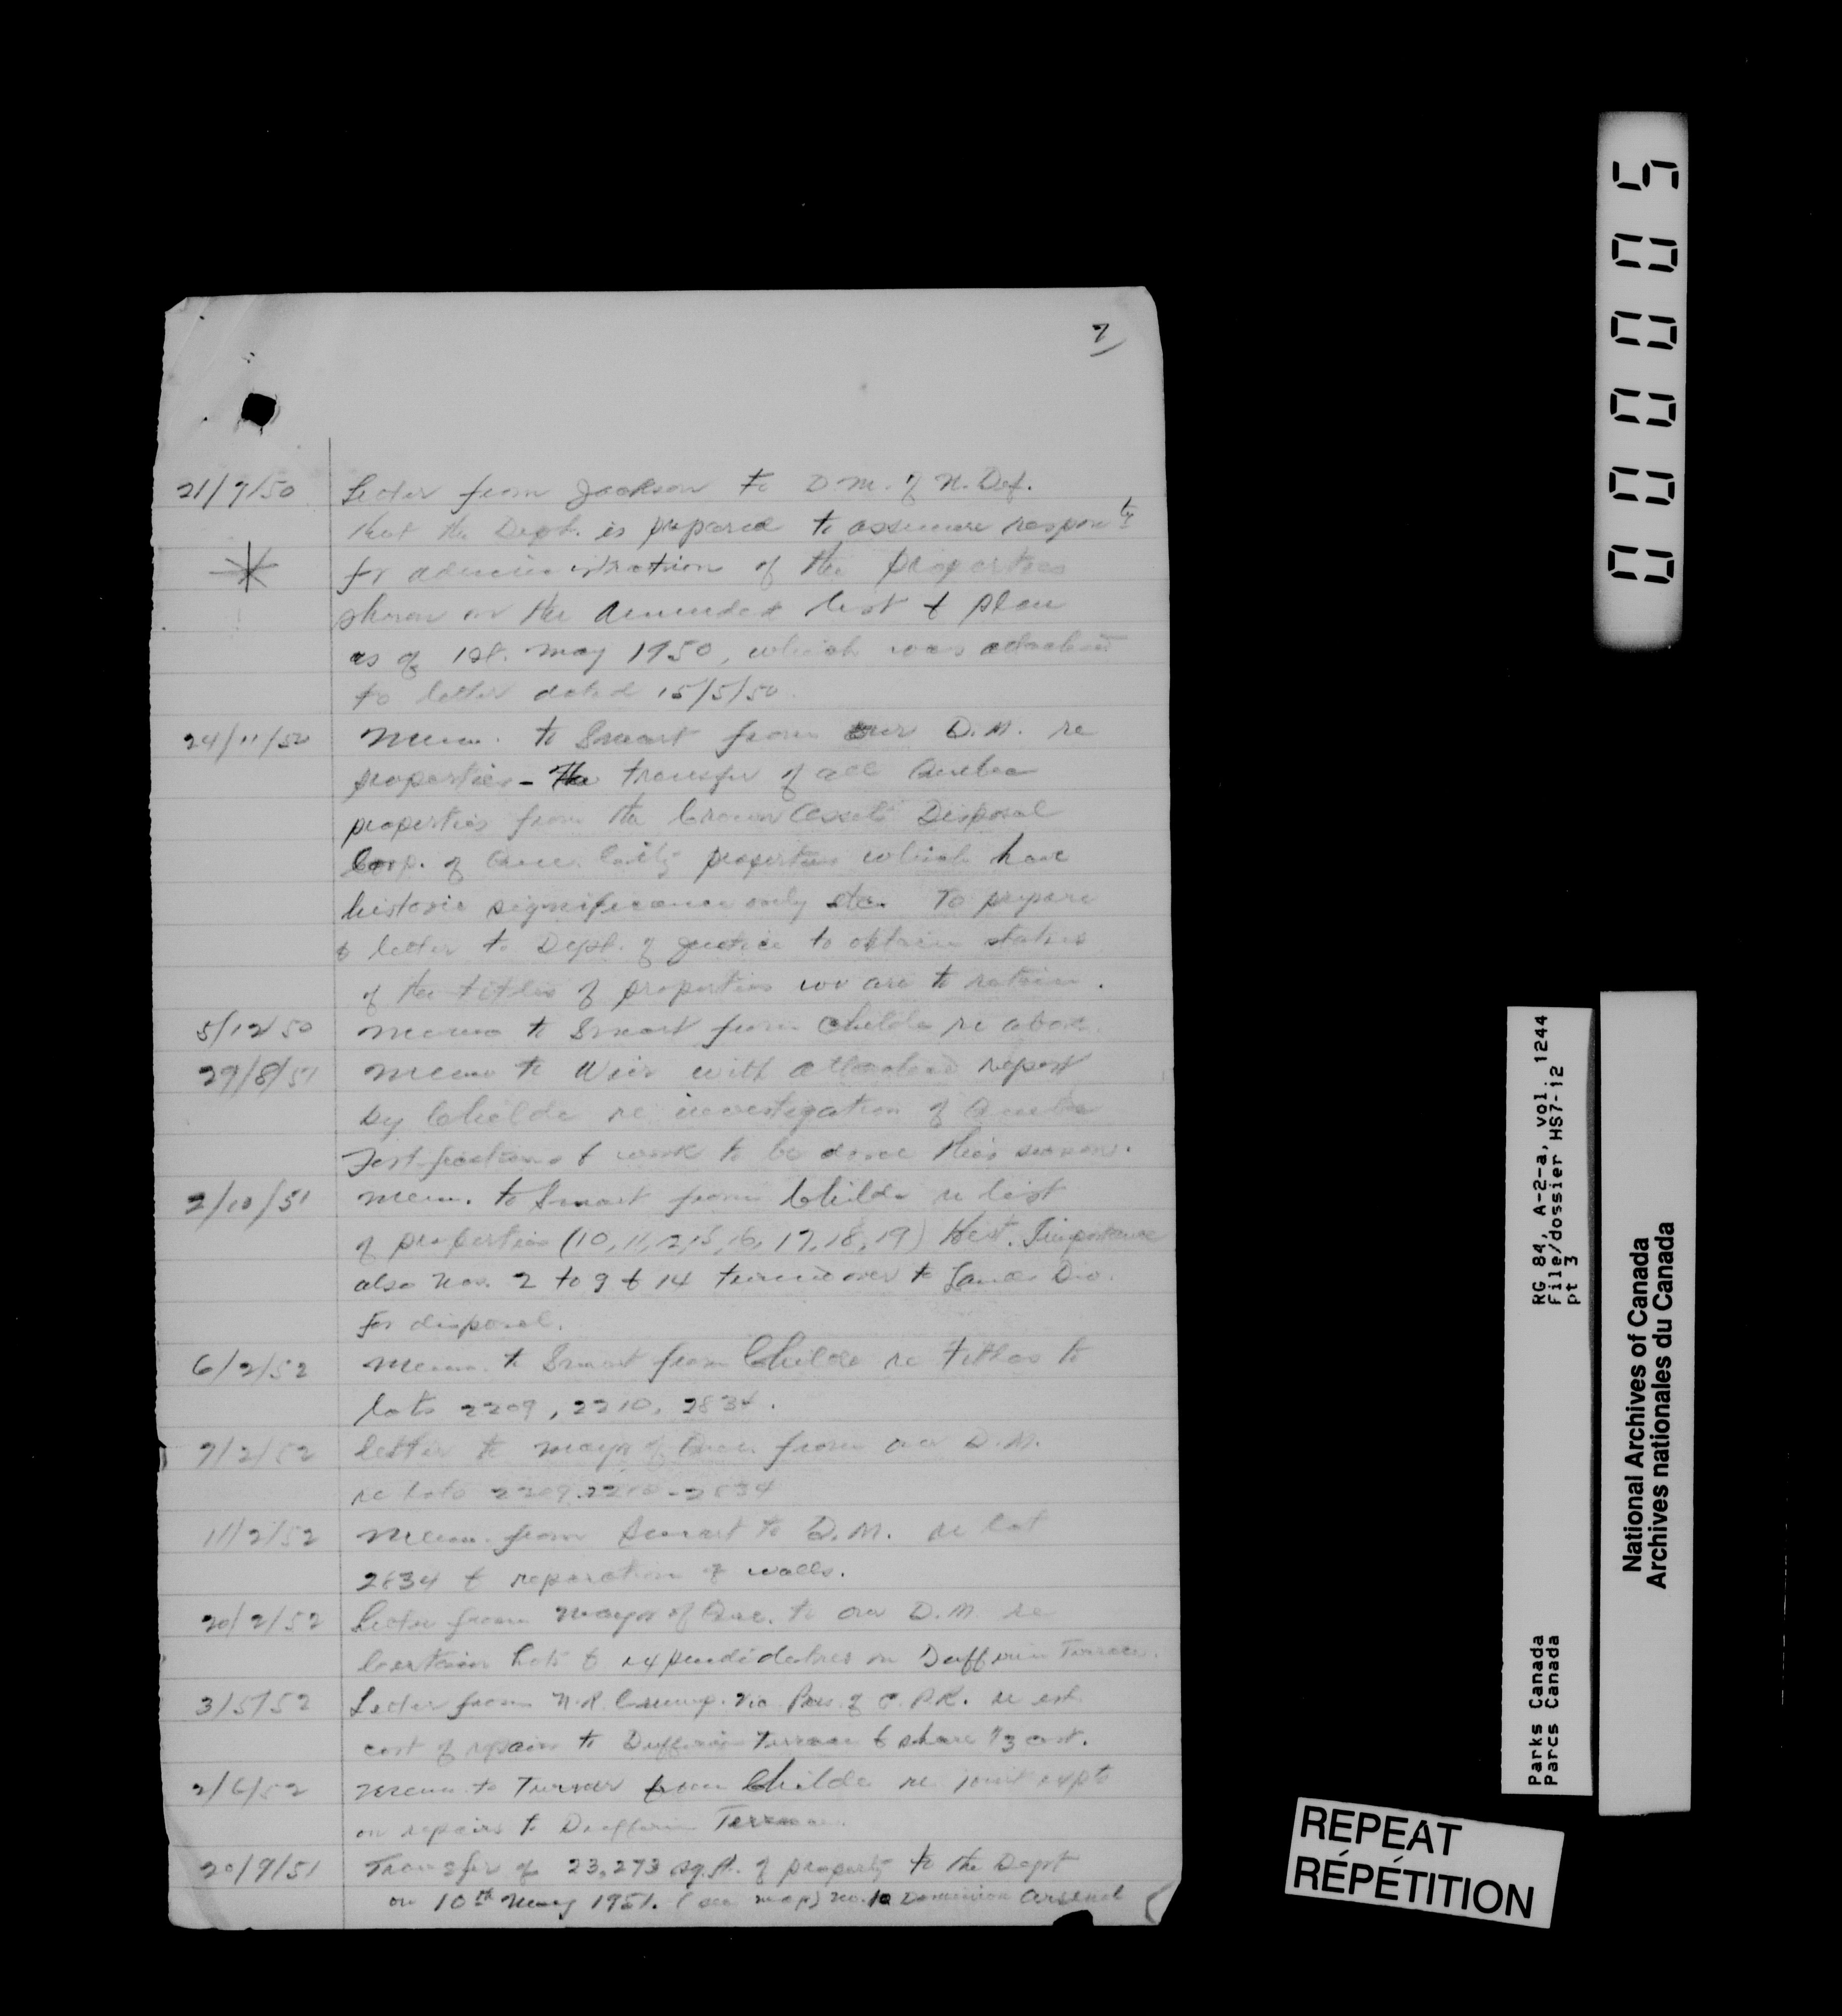 7
21/7/50 Letter from Jackson to D.M. of N. Def.
that the Dept. is prepared to assume responty
for administration of the properties
shown on the Amended list & plan
as of 1st. May 1950, which was attached
to letter dated 15/5/50.
24/11/50 Memo. to Smart from our D.M. re
properties - The transfer of all Quebec
properties from the Crown Assets Disposal
Corp. of Quec. City properties which have
historic significance only etc. To prepare
letter to Dept. of Justice to obtain status
of the titles of properties we are to retain.
5/12/50 Memo to Smart from Childe re above.
29/8/51 Memo to Weir with attached report
by Childe re investigation of Quebec
Fortifications & work to be done this season.
2/10/51 Mem. to Smart from Childe re list
of properties (10, 11, 12, 15, 16, 17, 18, 19) Hist. Importance
also Nos. 2 to 9 & 14 turned over to Lands Div.
for disposal.
6/2/52 Memo. to Smart from Childe re titles to
lots 2209, 2210, 2834.
7/2/52 Letter to Mayor of Quec. from our D.M.
re lots 2209-2210-2834
11/2/52 Mem. from Smart to D.M. re lot
2834 & reparation of walls.
20/2/52 Letter from Mayor of Quec. to our D.M. re
certain lots & expenditures on Dufferin Terrace.
3/5/52 Letter from N.R. Crump. Vice Pres. of C.P.R. re est.
cost of repairs to Dufferin Terrace & share 1/3 cost.
2/6/52 Memo to Turner from Childe re joint expts
on repairs to Dufferin Terrace.
20/9/51 Transfer of 23,273 sq. ft. of property to the Dept
on 10th May 1951. (see map) No. 10 Dominion Arsenal
000005
RG 84, A-2-a, vol. 1244
File/dossier HS7-12
pt 3
Parks Canada
Parcs Canada
National Archives of Canada
Archives nationales du Canada
REPEAT
RÉPÉTITION